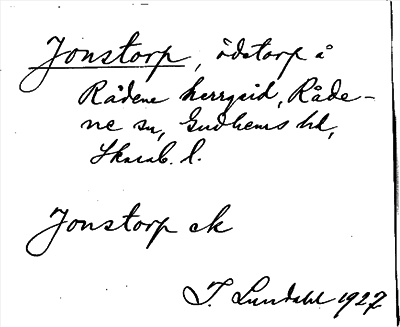 Jonstorp, ödetorp å
Rådene herrgård, Råde-
ne sn, Gudhems hd,
Skarab. l.
Jonstorp ek
I. Lundahl 1927